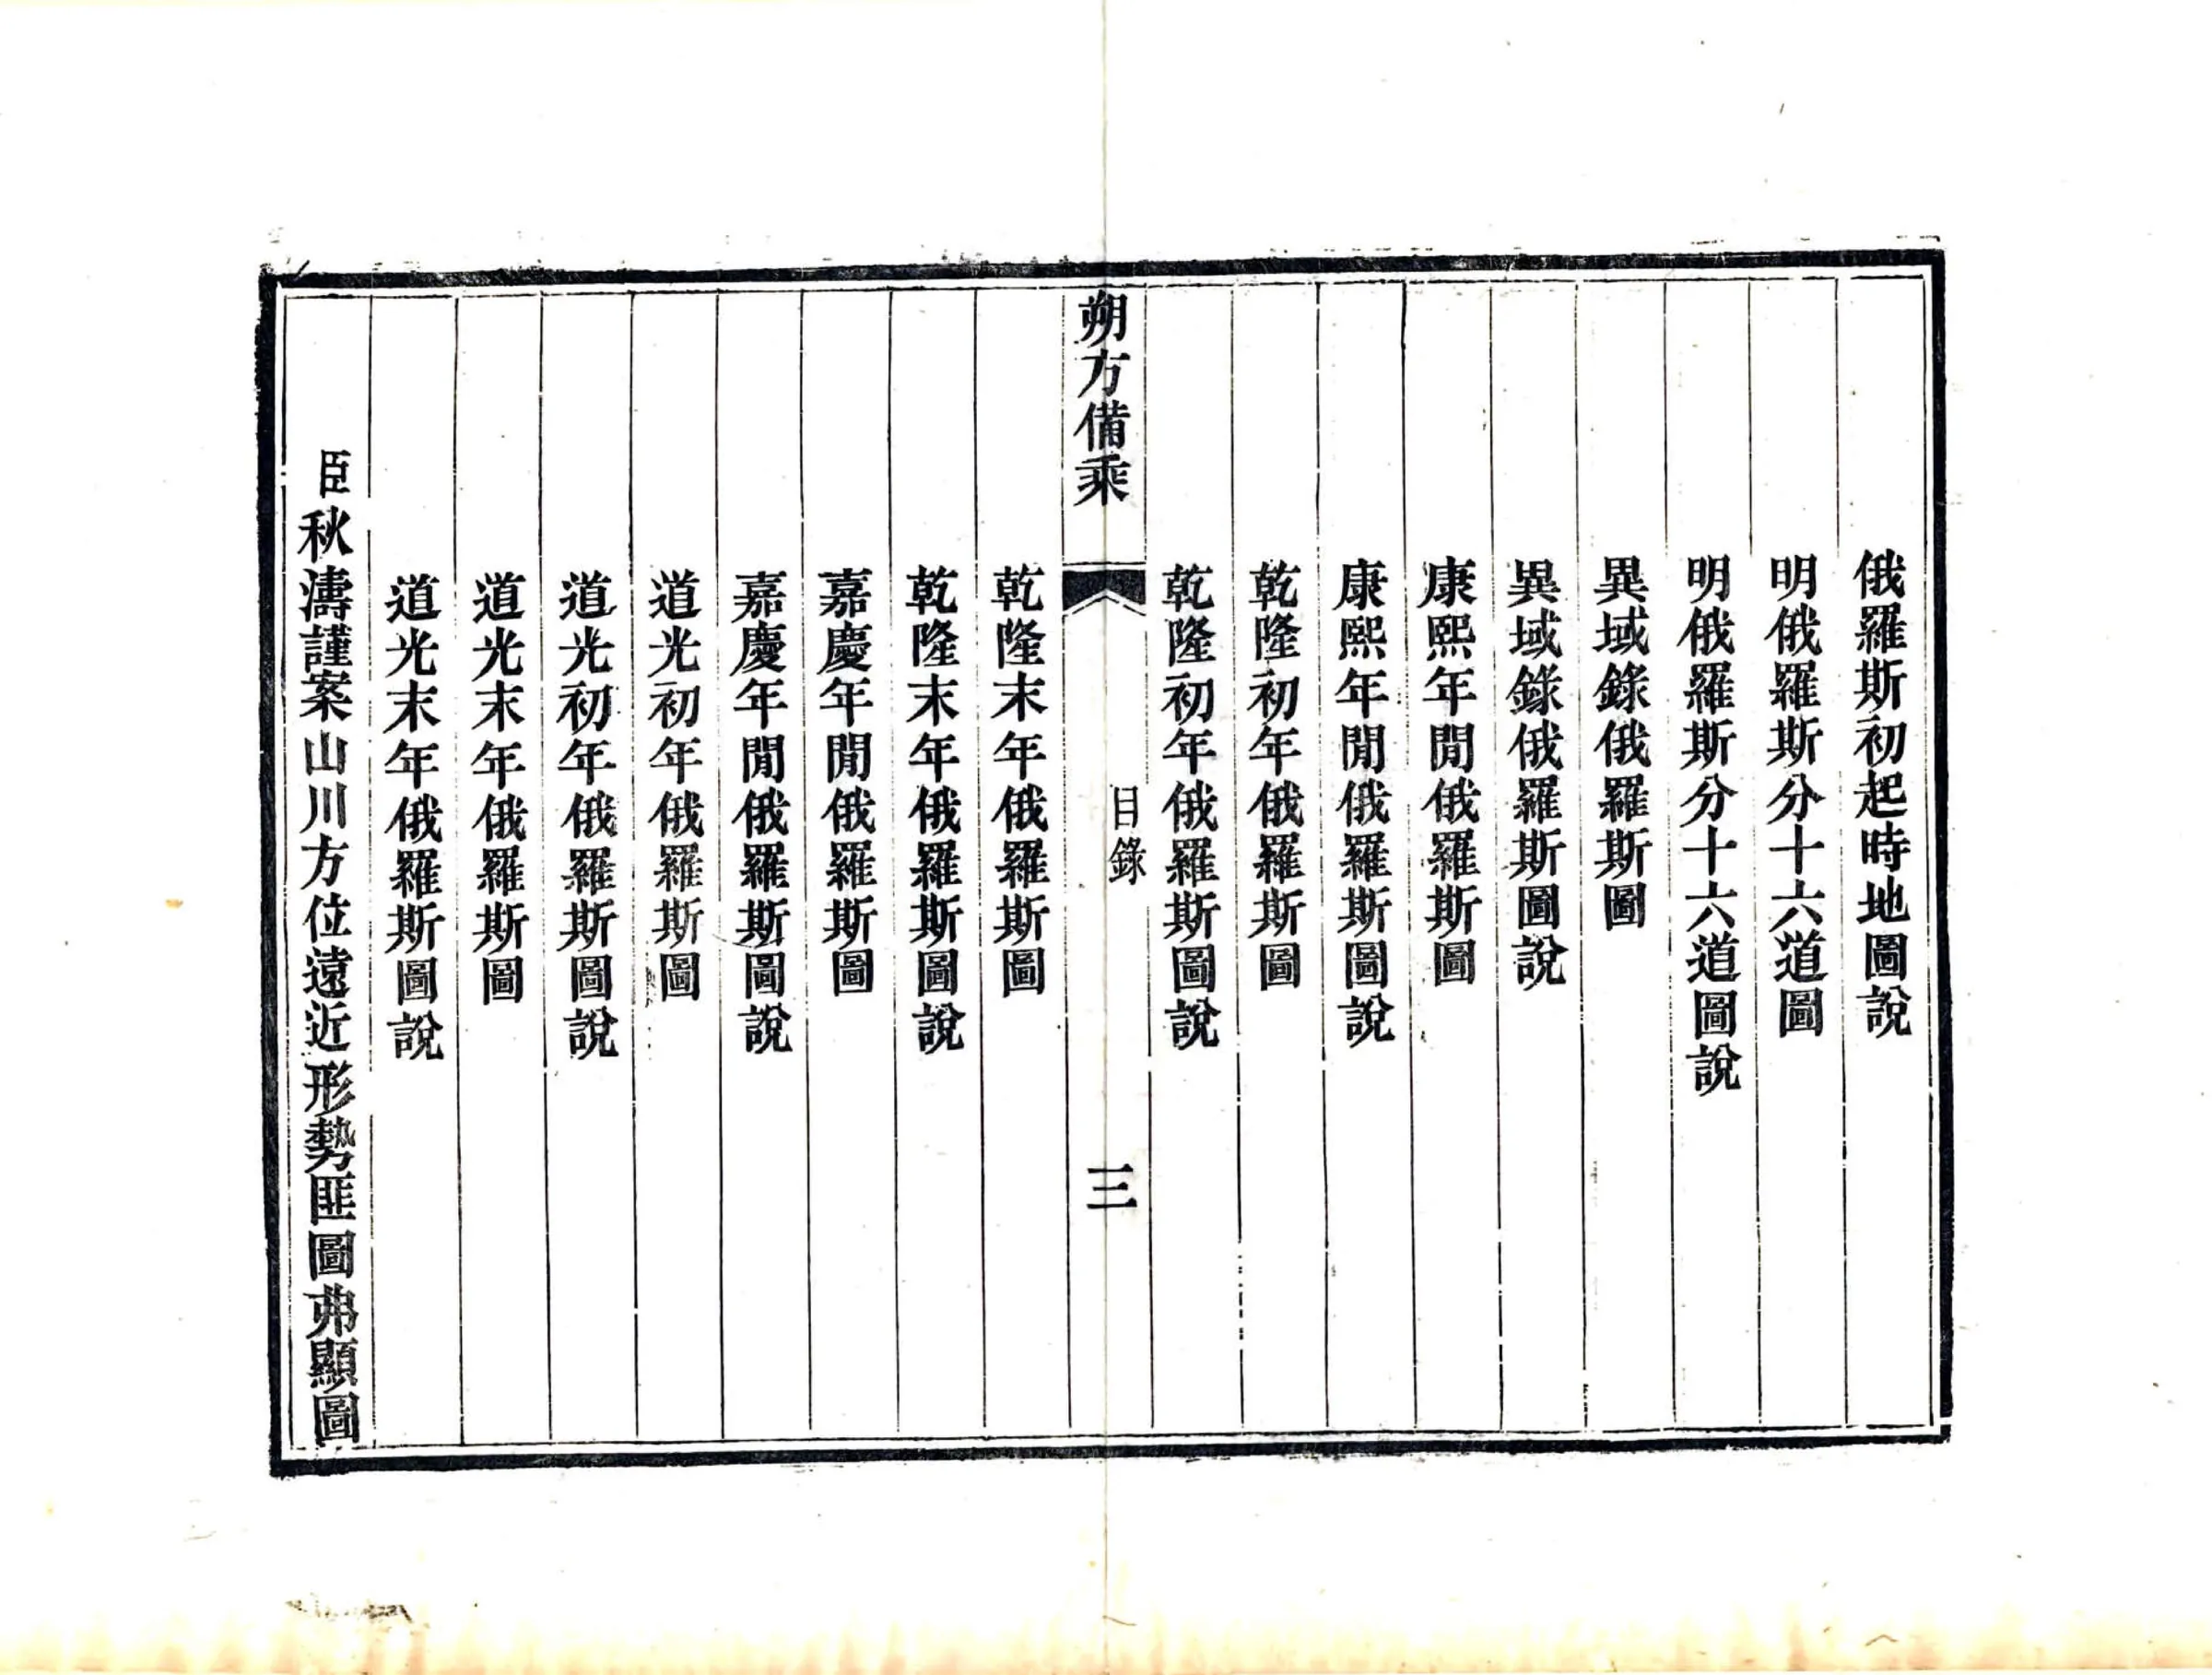 俄羅斯初起時地圖說
明俄羅斯分十六道圖
明俄羅斯分十六道圖說
異域錄俄羅斯圖
異域錄俄羅斯圖說
康熙年閒俄羅斯圖
康熙年閒俄羅斯圖說
乾隆初年俄羅斯圖
乾隆初年俄羅斯圖說
朔方備乘
目錄
三
乾隆末年俄羅斯圖
乾隆末年俄羅斯圖說
嘉慶年閒俄羅斯圖
嘉慶年閒俄羅斯圖說
道光初年俄羅斯圖
道光初年俄羅斯圖說
道光末年俄羅斯圖
道光末年俄羅斯圖說
臣秋濤謹案山川方位遠近形勢匪圖弗顯圖